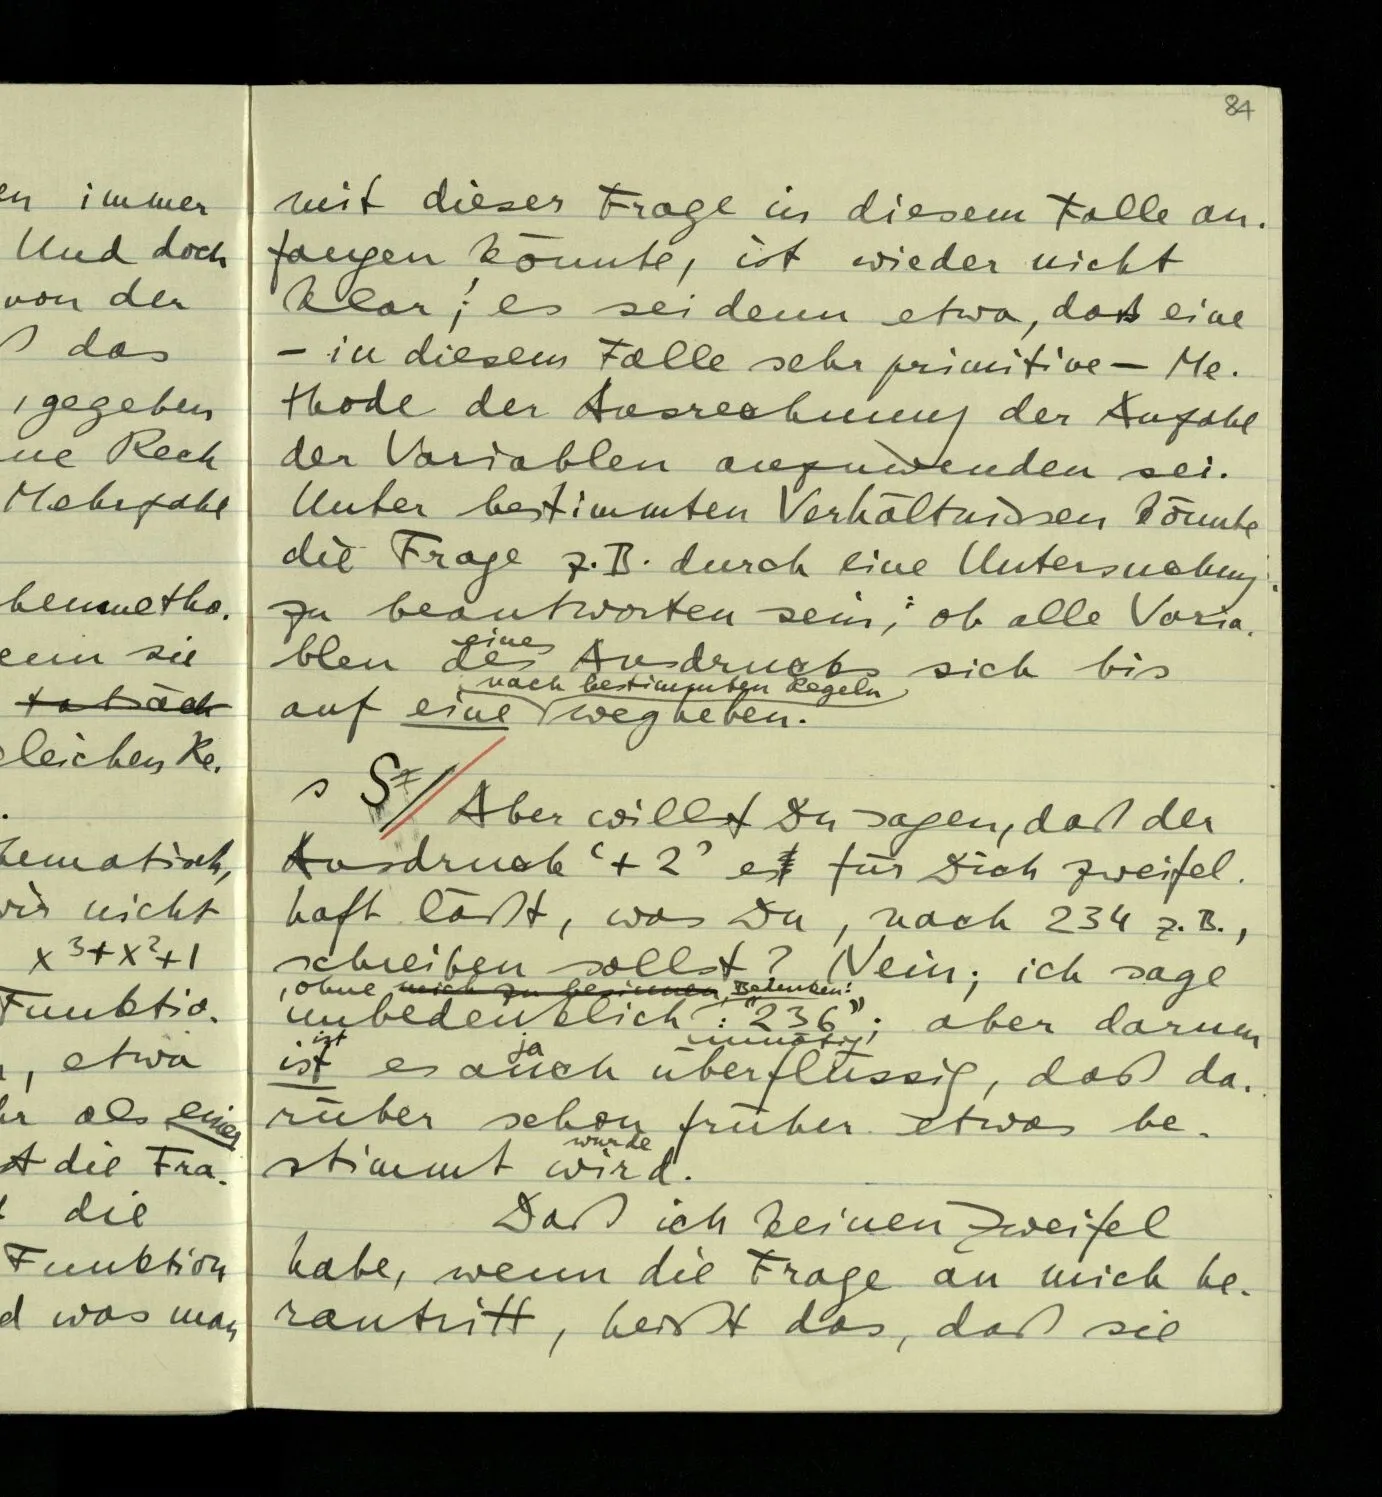 84
en immer
Und doch
von der
ß das
, gegeben
ne Rech
Mehrzahl
henmetho-
enn sie
tatsäch
leichen Re-
.
hematisch,
wir nicht
x³+x²+1
Funktio-
, etwa
hr als einer
t die Fra-
die
Funktion
d was man
mit dieser Frage in diesem Falle an-
fangen könnte, ist wieder nicht
klar; es sei denn etwa, daß eine
– in diesem Falle sehr primitive – Me-
thode der Ausrechnung der Anzahl
der Variablen anzuwenden sei.
Unter bestimmten Verhältnissen könnte
die Frage z.B. durch eine Untersuchung
zu beantworten sein: ob alle Varia-
eines
blen des Ausdrucks sich bis
nach bestimmten Regeln
auf eine wegheben.
s S //
Aber willst Du sagen, daß der
Ausdruck ‘+ 2’ es für Dich zweifel-
haft läßt, was Du, nach 234 z.B.,
schreiben sollst? Nein; ich sage
, ohne mich zu besinnen, Bedenken:
unbedenklich: “236”; aber darum
ist ja unnötig
ist es auch überflüssig, daß da-
rüber schon früher etwas be-
wurde
stimmt wird.
Daß ich keinen Zweifel
habe, wenn die Frage an mich he-
rantritt, heißt das, daß sie